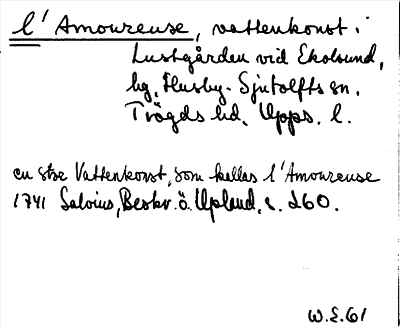 l'Amoureuse, vattenkonst i
Lustgården vid Ekolsund,
hg, Husby-Sjutolfts sn.
Trögds hd. Upps. l.
en stor Vattenkonst, som kallas l'Amoureuse
1741 Salvius, Beskr. ö. Upland, s. 260.
W.E.61